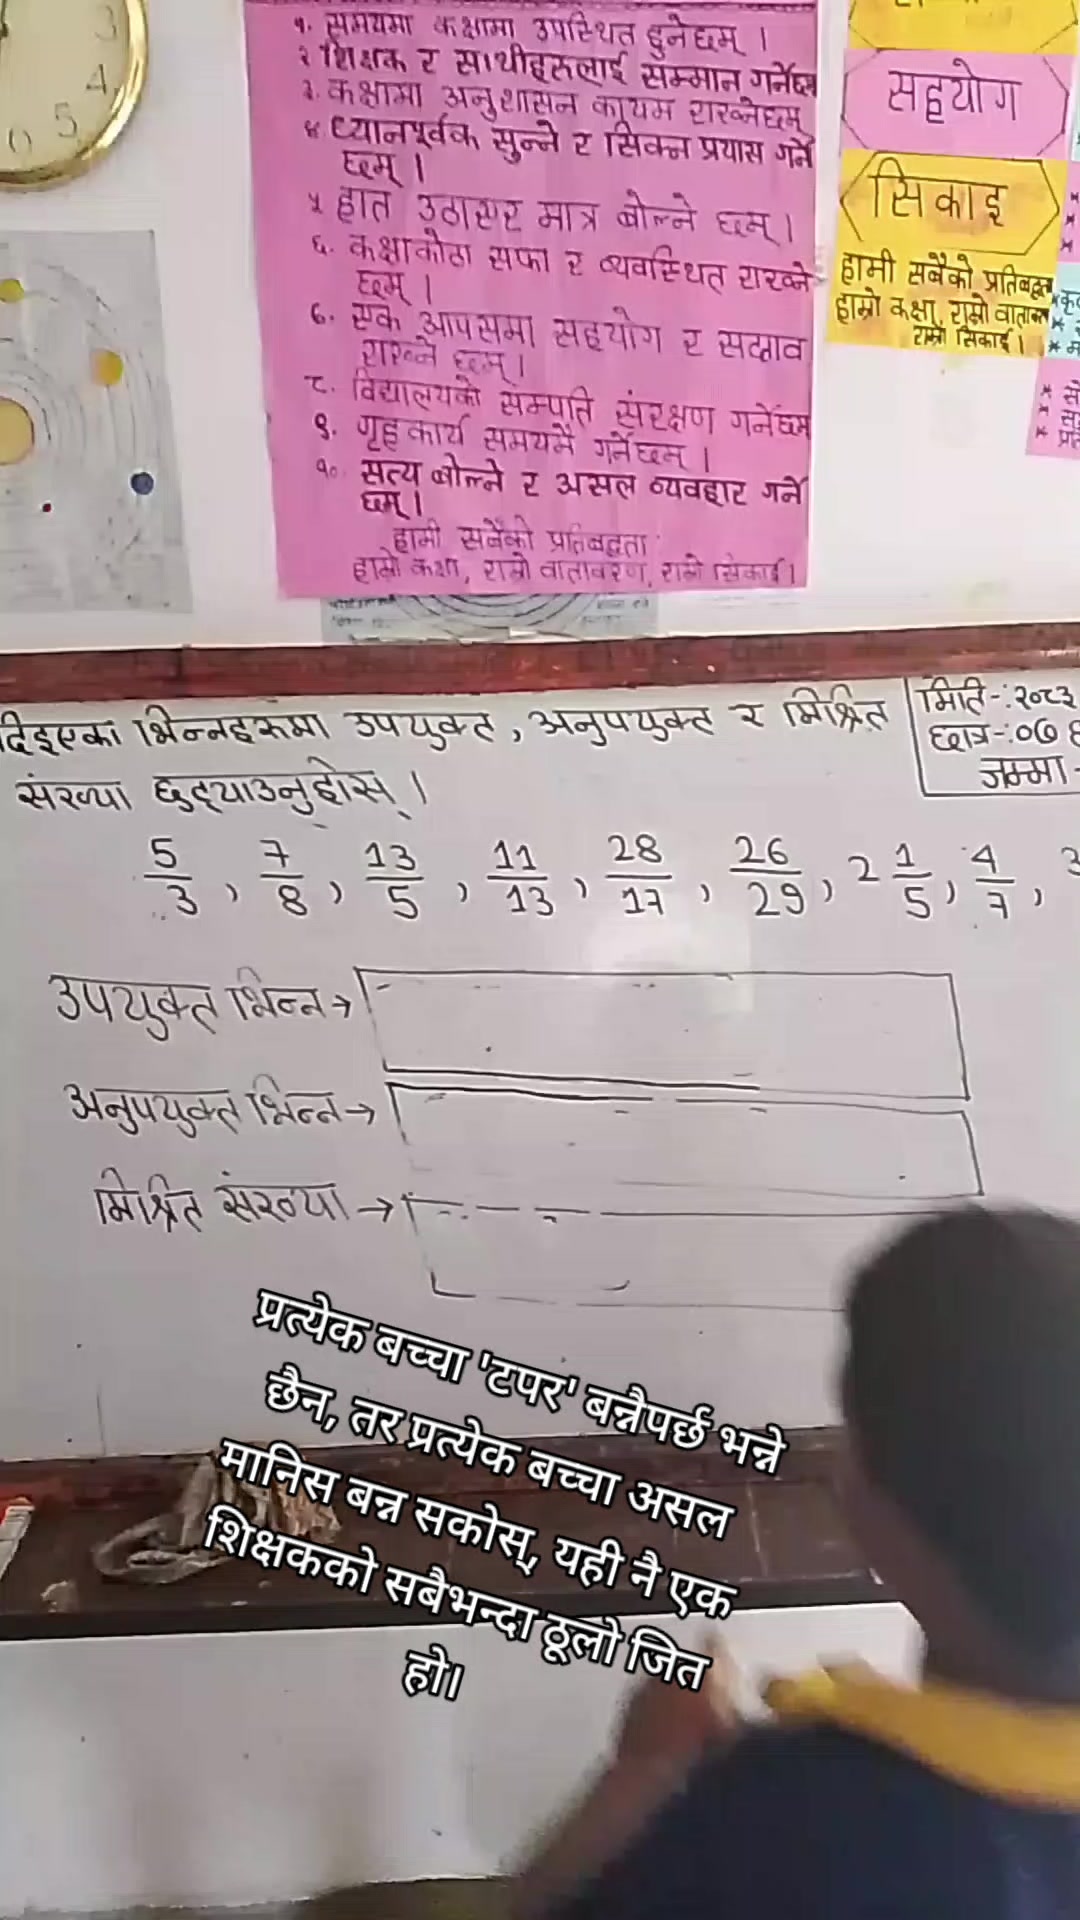 3
4
5
१. समयमा कक्षामा उपस्थित हुनेछम् ।
२ शिक्षक र साथीहरुलाई सम्मान गर्नेछम
३. कक्षामा अनुशासन कायम राख्नेछम्
४. ध्यानपूर्वक सुन्ने र सिक्न प्रयास गर्ने
छम् ।
५ हात उठाएर मात्र बोल्ने छम् ।
६. कक्षाकोठा सफा र व्यवस्थित राख्ने
छम् ।
७. एक आपसमा सहयोग र सद्भाव
राख्ने छम् ।
८. विद्यालयको सम्पति संरक्षण गर्नेछम
९. गृहकार्य समयमै गर्नेछम् ।
१०. सत्य बोल्ने र असल व्यवहार गर्ने
छम् ।
हामी सबैको प्रतिबद्धता
हाम्रो कक्षा, राम्रो वातावरण, राम्रो सिकाई ।
सहयोग
सिकाइ
हामी सबैको प्रतिबद्धता
हाम्रो कक्षा, राम्रो वातावरण
राम्रो सिकाई ।
दिइएका भिन्नहरुमा उपयुक्त, अनुपयुक्त र मिश्रित
संख्या छुट्याउनुहोस् ।
मिति-:२०८३
छात्र-:०७
जम्मा-
5/3, 7/8, 13/5, 11/13, 28/17, 26/29, 2 1/5, 4/7,
उपयुक्त भिन्न →
अनुपयुक्त भिन्न →
मिश्रित संख्या →
प्रत्येक बच्चा 'टपर' बन्नैपर्छ भन्ने
छैन, तर प्रत्येक बच्चा असल
मानिस बन्न सकोस्, यही नै एक
शिक्षकको सबैभन्दा ठूलो जित
हो।